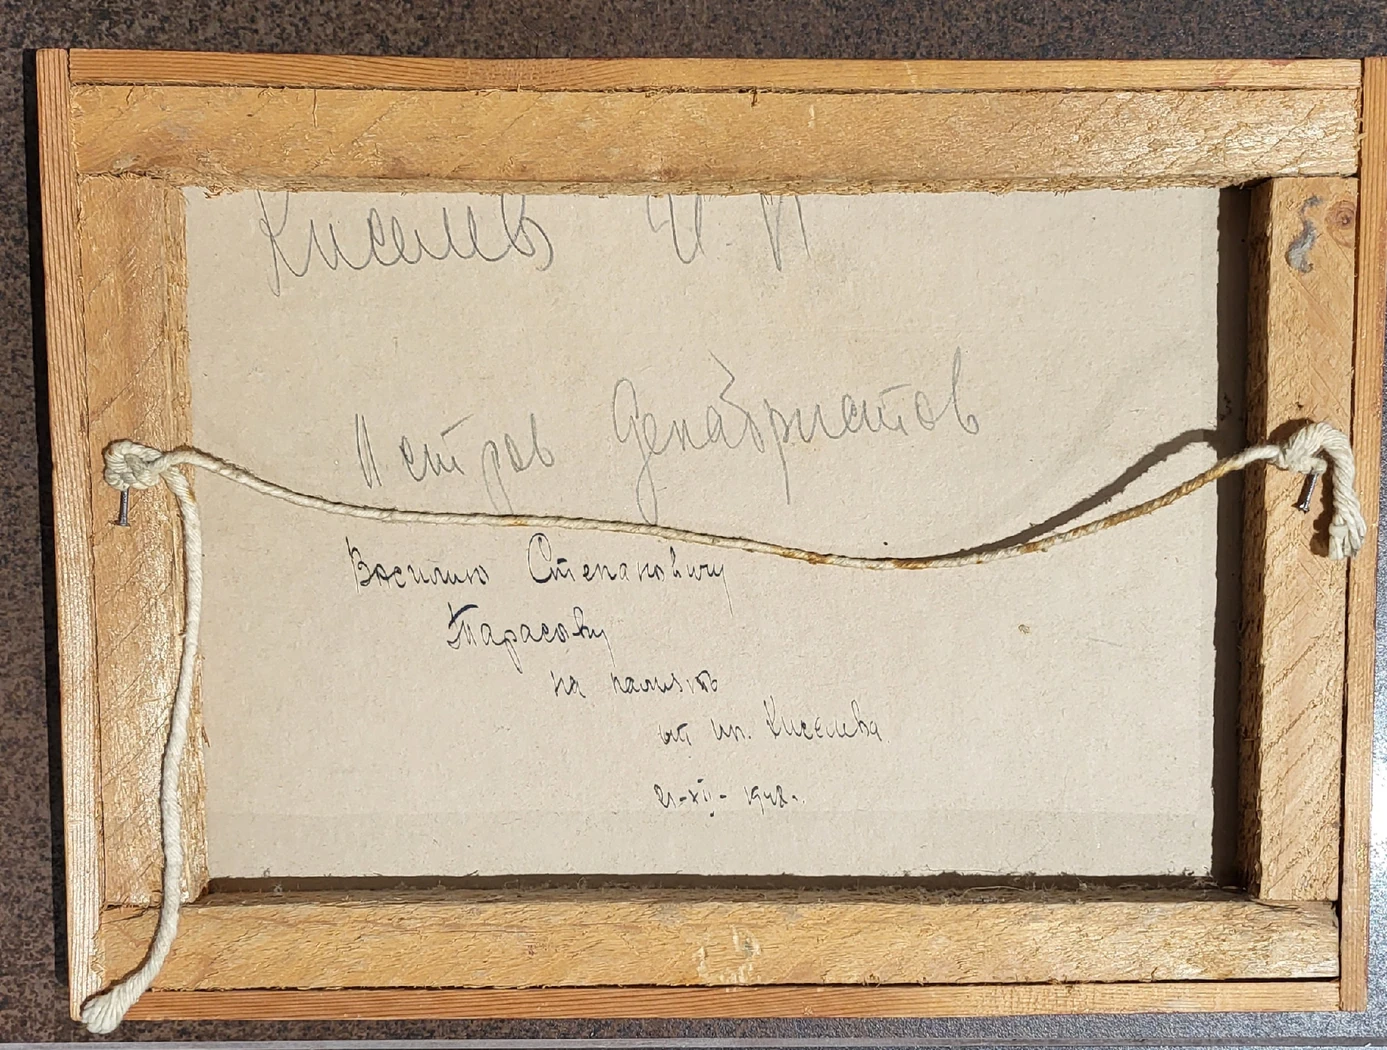 Киселев И. П
Петров Декабристов
Василию Степановичу
Тарасову
на память
от ип. Киселева
21-XII-1948г.